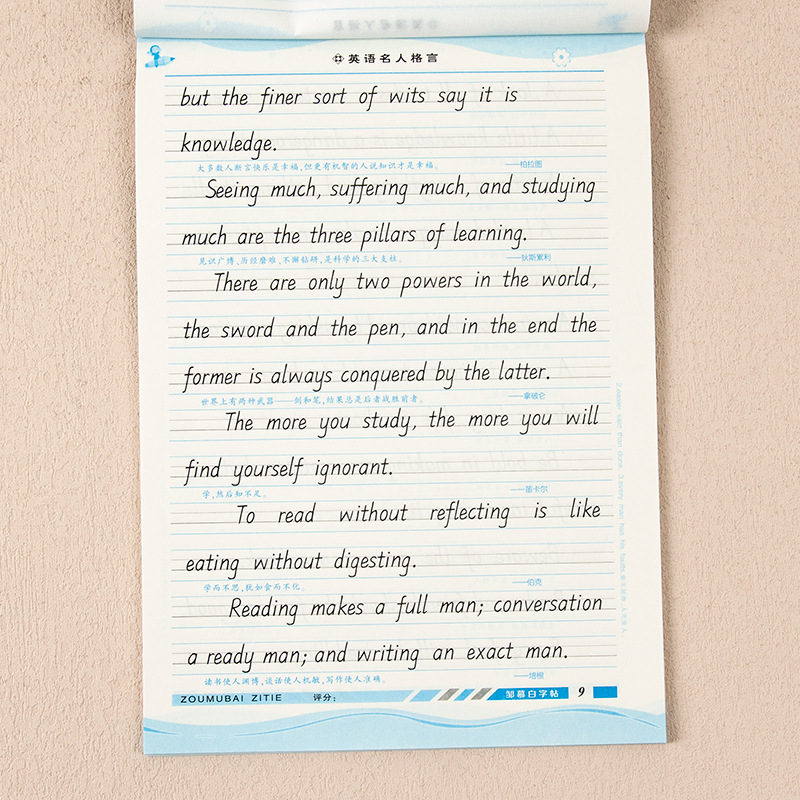 英语名人格言
but the finer sort of wits say it is
knowledge.
大多数人断言快乐是幸福,但更有机智的人说知识才是幸福。 ——柏拉图
Seeing much, suffering much, and studying
much are the three pillars of learning.
见识广博、历经磨难、不懈钻研,是科学的三大支柱。 ——狄斯累利
There are only two powers in the world,
the sword and the pen, and in the end the
former is always conquered by the latter.
世界上有两种武器——剑和笔,结果总是后者战胜前者。 ——拿破仑
The more you study, the more you will
find yourself ignorant.
学,然后知不足。 ——笛卡尔
To read without reflecting is like
eating without digesting.
学而不思,犹如食而不化。 ——伯克
Reading makes a full man; conversation
a ready man; and writing an exact man.
读书使人渊博,谈话使人机敏,写作使人准确。 ——培根
ZOUMUBAI ZITIE 评分: 邹慕白字帖 9